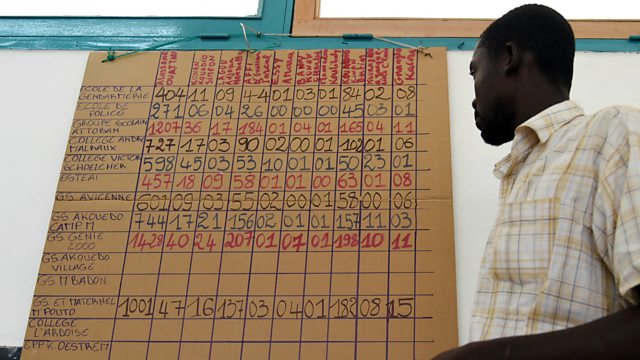 ALASSANE OUATTARA
ECOLE DE LA GENDARMERIE 404 11 09 44 01 03 01 84 02 08
ECOLE DE POLICE 271 06 04 26 00 00 00 45 03 01
GROUPE SCOLAIRE ATTOBAN 1207 36 17 184 01 04 01 165 04 11
COLLEGE ANDRE MALRAUX 727 17 03 90 02 00 01 102 01 06
COLLEGE VICTOR SCHOELCHER 598 45 03 53 10 01 01 50 23 01
ESTEAI 457 18 09 58 01 01 00 63 01 08
GS. AVICENNE 601 09 03 55 02 00 01 58 00 06
GS. AKOUEDO CAMP M 744 17 21 156 02 01 01 157 11 03
GS GENIE 2000 1428 40 24 207 01 07 01 198 10 11
GS. AKOUEDO VILLAGE
GS. M BADON
GS. ET MATERNEL M POUTO 1001 47 16 137 03 04 01 182 08 15
COLLEGE L'ARDOISE
EPPK OESTREM